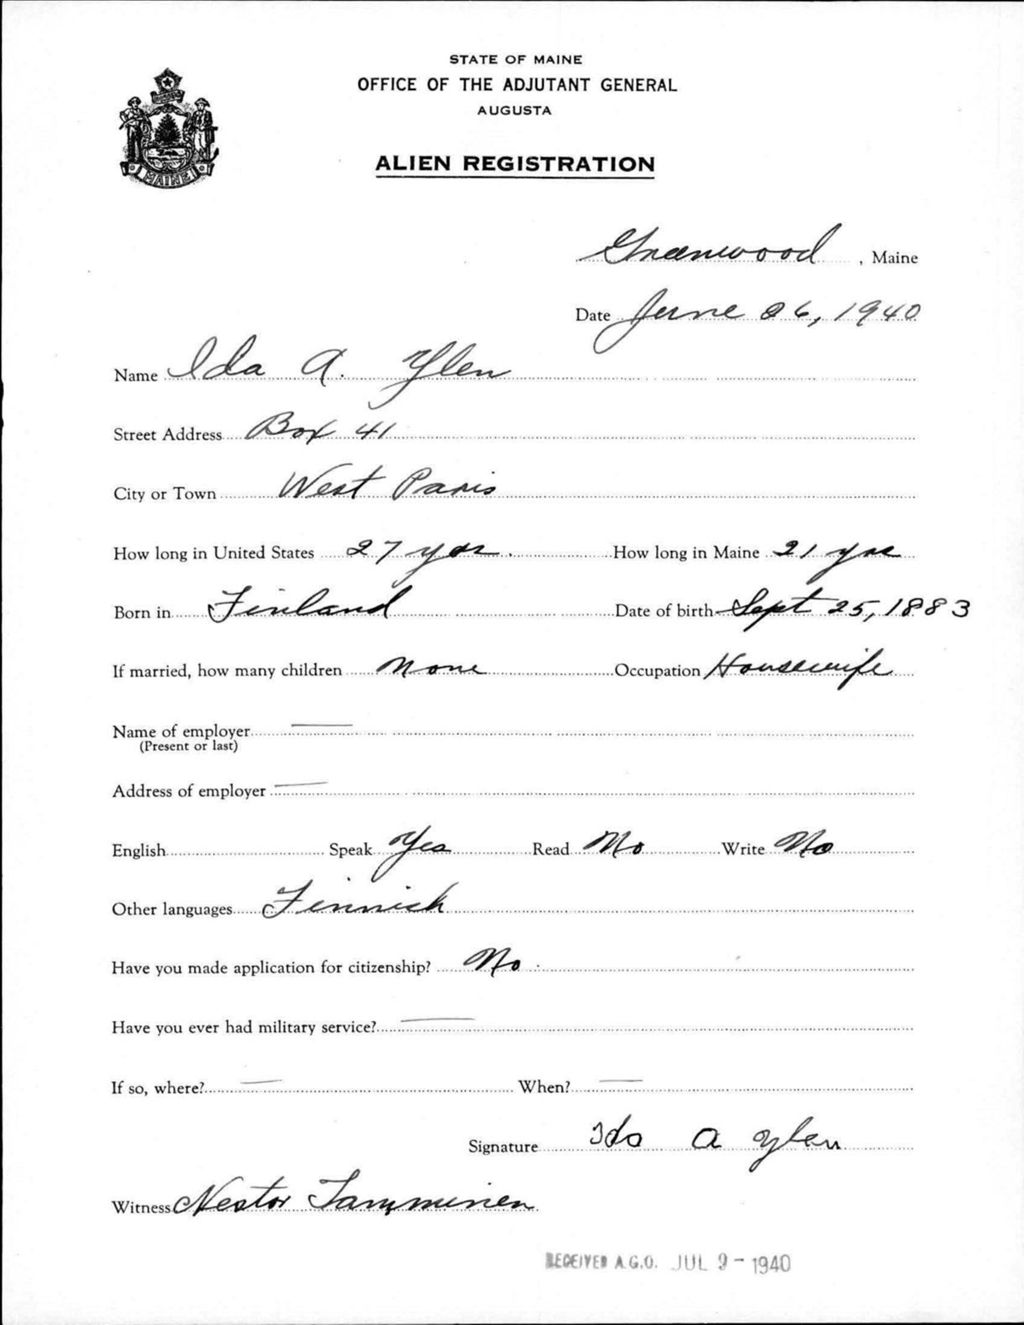 STATE OF MAINE
OFFICE OF THE ADJUTANT GENERAL
AUGUSTA
MAINE
ALIEN REGISTRATION
Greenwood, Maine
Date June 26, 1940
Name Ida A. Ylen
Street Address Box 41
City or Town West Paris
How long in United States 27 yrs. How long in Maine 21 yrs
Born in Finland Date of birth Sept 25, 1883
If married, how many children None Occupation Housewife
Name of employer
(Present or last)
Address of employer
English Speak Yes Read No Write No
Other languages Finnish
Have you made application for citizenship? No
Have you ever had military service?
If so, where? When?
Signature Ida A Ylen
Witness Nestor Tamminen
RECEIVED A.G.O. JUL 9 - 1940